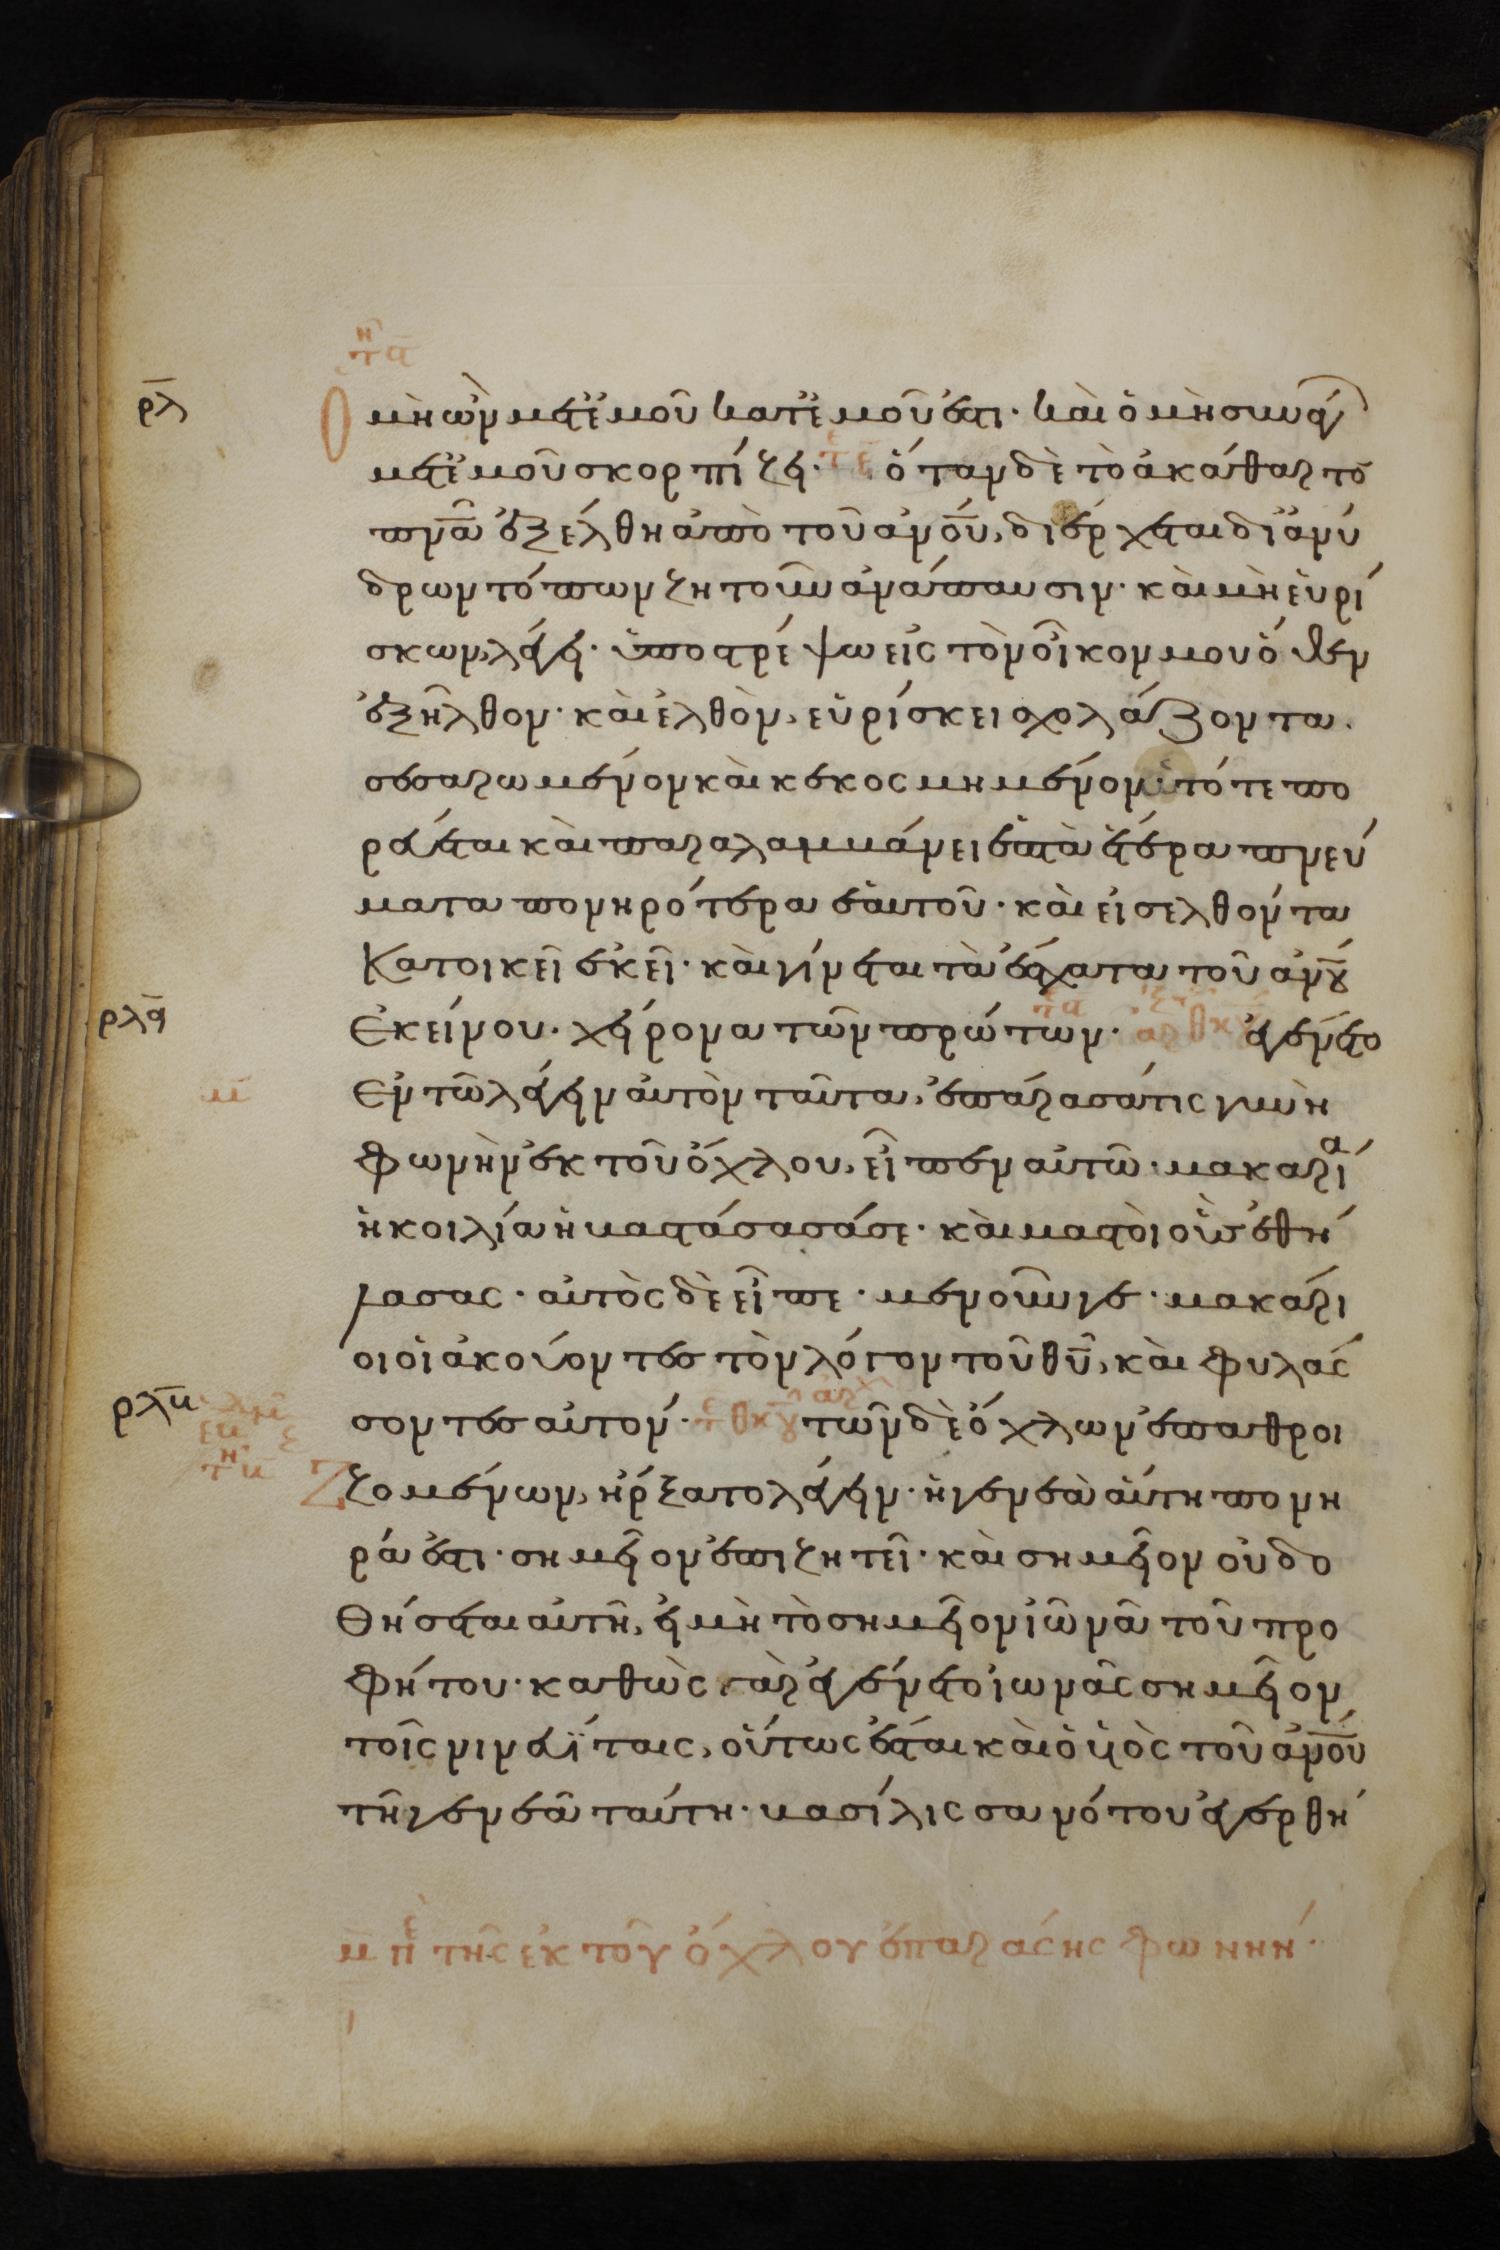 ρλ
Ὁ μὴ ὢν μετ' ἐμοῦ κατ' ἐμοῦ ἐστι· καὶ ὁ μὴ συνάγ(ων)
μετ' ἐμοῦ σκορπίζει· ὅταν δὲ τὸ ἀκάθαρτο̄
πν̅α̅ ἐξέλθη ἀπὸ τοῦ ἀν̅ο̅υ̅, διέρχεται δι' ἀνύ
δρων τόπων ζητοῦν ἀνάπαυσιν· καὶ μὴ εὑρί
σκων, λέγει· ὑποστρέψω εἰς τὸν οἶκον μου ὅθεν
ἐξῆλθον· καὶ ἐλθὸν, εὑρίσκει σχολάζοντα.
σεσαρωμένον καὶ κεκοσμημένον· τότε πο
ρεύεται καὶ παραλαμβάνει ἑπτὰ ἕτερα πνεύ
ματα πονηρότερα ἑαυτοῦ· καὶ εἰσελθόντα
Κατοικεῖ ἐκεῖ· καὶ γίνεται τὰ ἔσχατα τοῦ ἀν̅ο̅υ̅
ρλα
Ἐκείνου· χείρονα τῶν πρώτων· ἐγένετο
μ
Ἐν τῶ λέγειν αὐτὸν ταῦτα, ἐπάρασά τις γυνὴ
φωνὴν ἐκ τοῦ ὄχλου, εἶπεν αὐτῶ· μακαρία
ἡ κοιλία ἡ βαστάσασά σε· καὶ μαστοὶ οὓς ἐθή
λασας· αὐτὸς δὲ εἶπε· μενοῦνγε· μακάρι
οι οἱ ἀκούοντες τὸν λόγον τοῦ θ̅υ̅, καὶ φυλάσ
ρλβ
σοντες αὐτόν· τῶν δὲ ὄχλων ἐπαθροι
ζομένων, ἤρξατο λέγειν· ἡ γενεὰ αὕτη πονη
ρά ἐστι· σημεῖον ἐπιζητεῖ· καὶ σημεῖον οὐ δο
Θήσεται αὐτῆ, εἰ μὴ τὸ σημεῖον ἰῶνᾶ τοῦ προ
φήτου· καθὼς γὰρ ἐγένετο ἰωνᾶς σημεῖον
τοῖς νινευΐταις, οὕτως ἔσται καὶ ὁ υἱὸς τοῦ ἀν̅ο̅υ̅
τῆ γενεᾶ ταύτη· βασίλισσα νότου ἐγερθή
μ πε τῆς ἐκ τοῦ ὄχλου ἐπαράσης φωνήν·